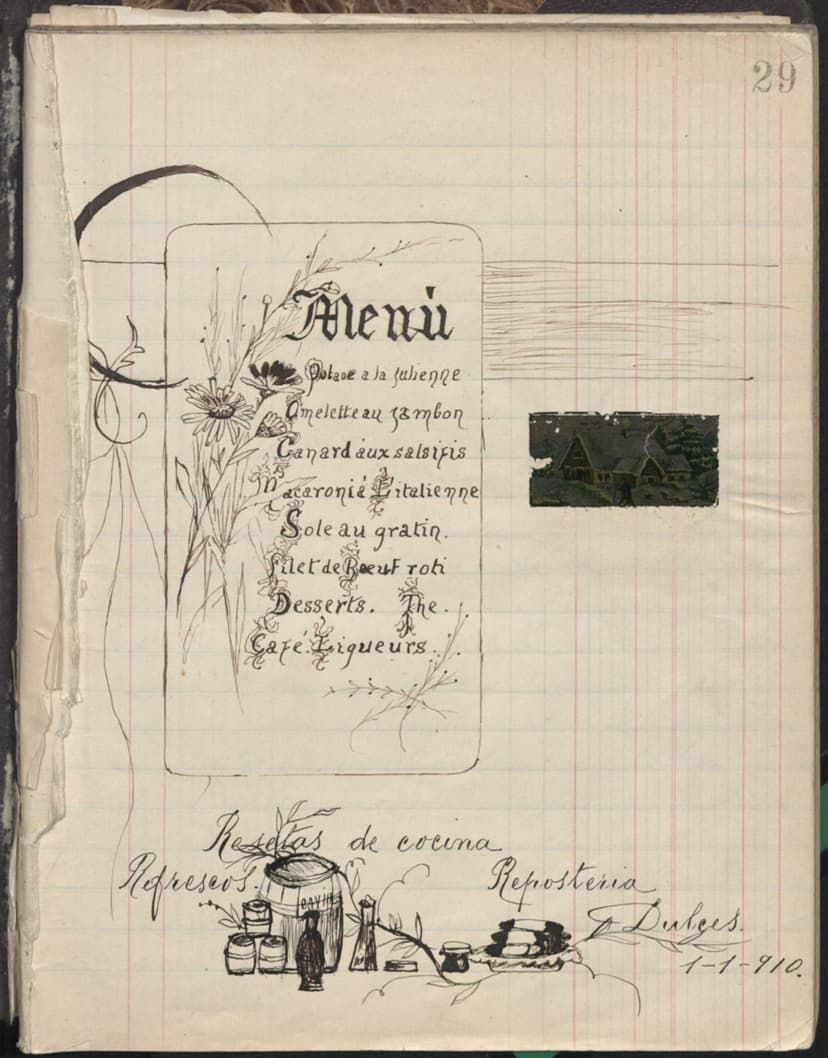 29
Menù
Potage a la Julienne
Omelette au jambon
Canard aux salsifis
Macaroni á L'italienne
Sole au gratin.
Filet de Bœuf roti
Desserts. The.
Café. Liqueurs.
Resetas de cocina
Refrescos. Reposteria
Dulces.
1-1-910.